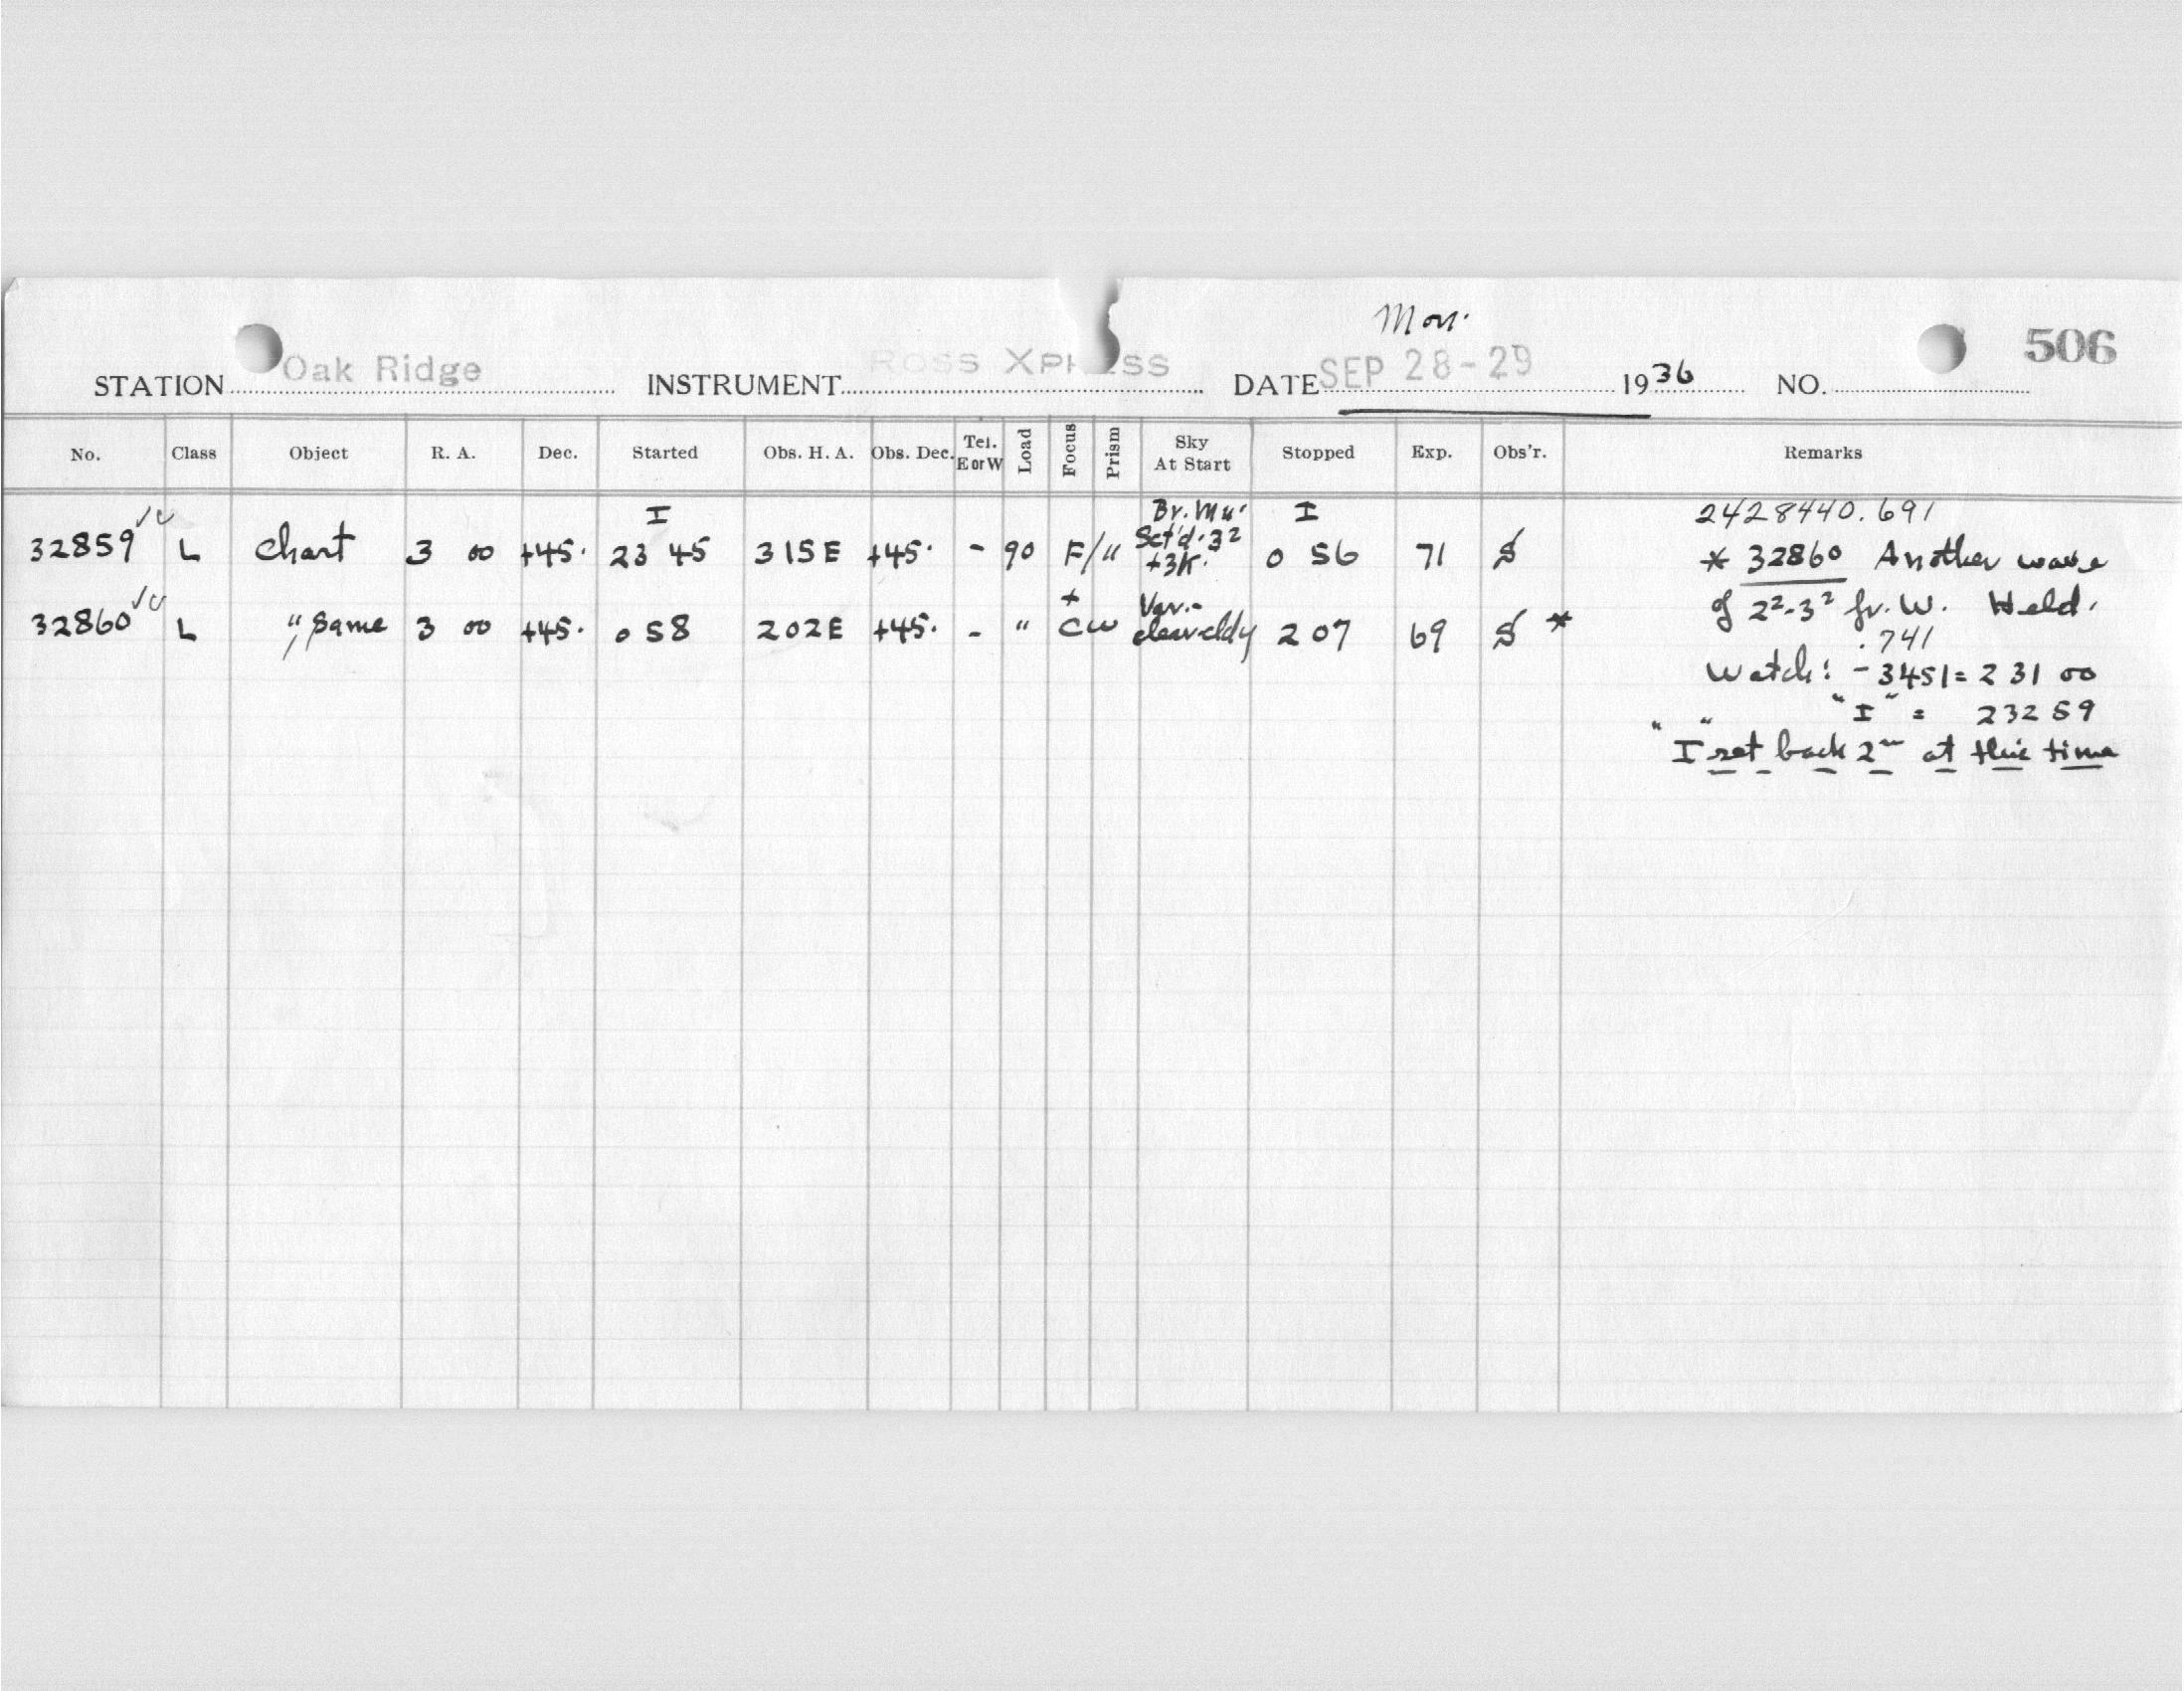 Mon.
STATION Oak Ridge INSTRUMENT ROSS XPRESS DATE SEP 28-29 1936 NO. 506
No. Class Object R. A. Dec. Started Obs. H. A. Obs. Dec. Tel. E or W Load Focus Prism Sky At Start Stopped Exp. Obs'r. Remarks
I Br. Mu. I 2428440.691
32859 L Chart 3 00 +45. 23 45 315E +45. - 90 F/" Sct'd. 3² +3K. 0 56 71 S * 32860 Another wave
of 2²-3² fr. W. Held.
32860 L " same 3 00 +45. 0 58 202E +45. - " + CW Var.- clear-cldy 2 07 69 S *
.741
Watch: - 3451 = 2 31 00
" " "I" = 23259
I set back 2m at this time